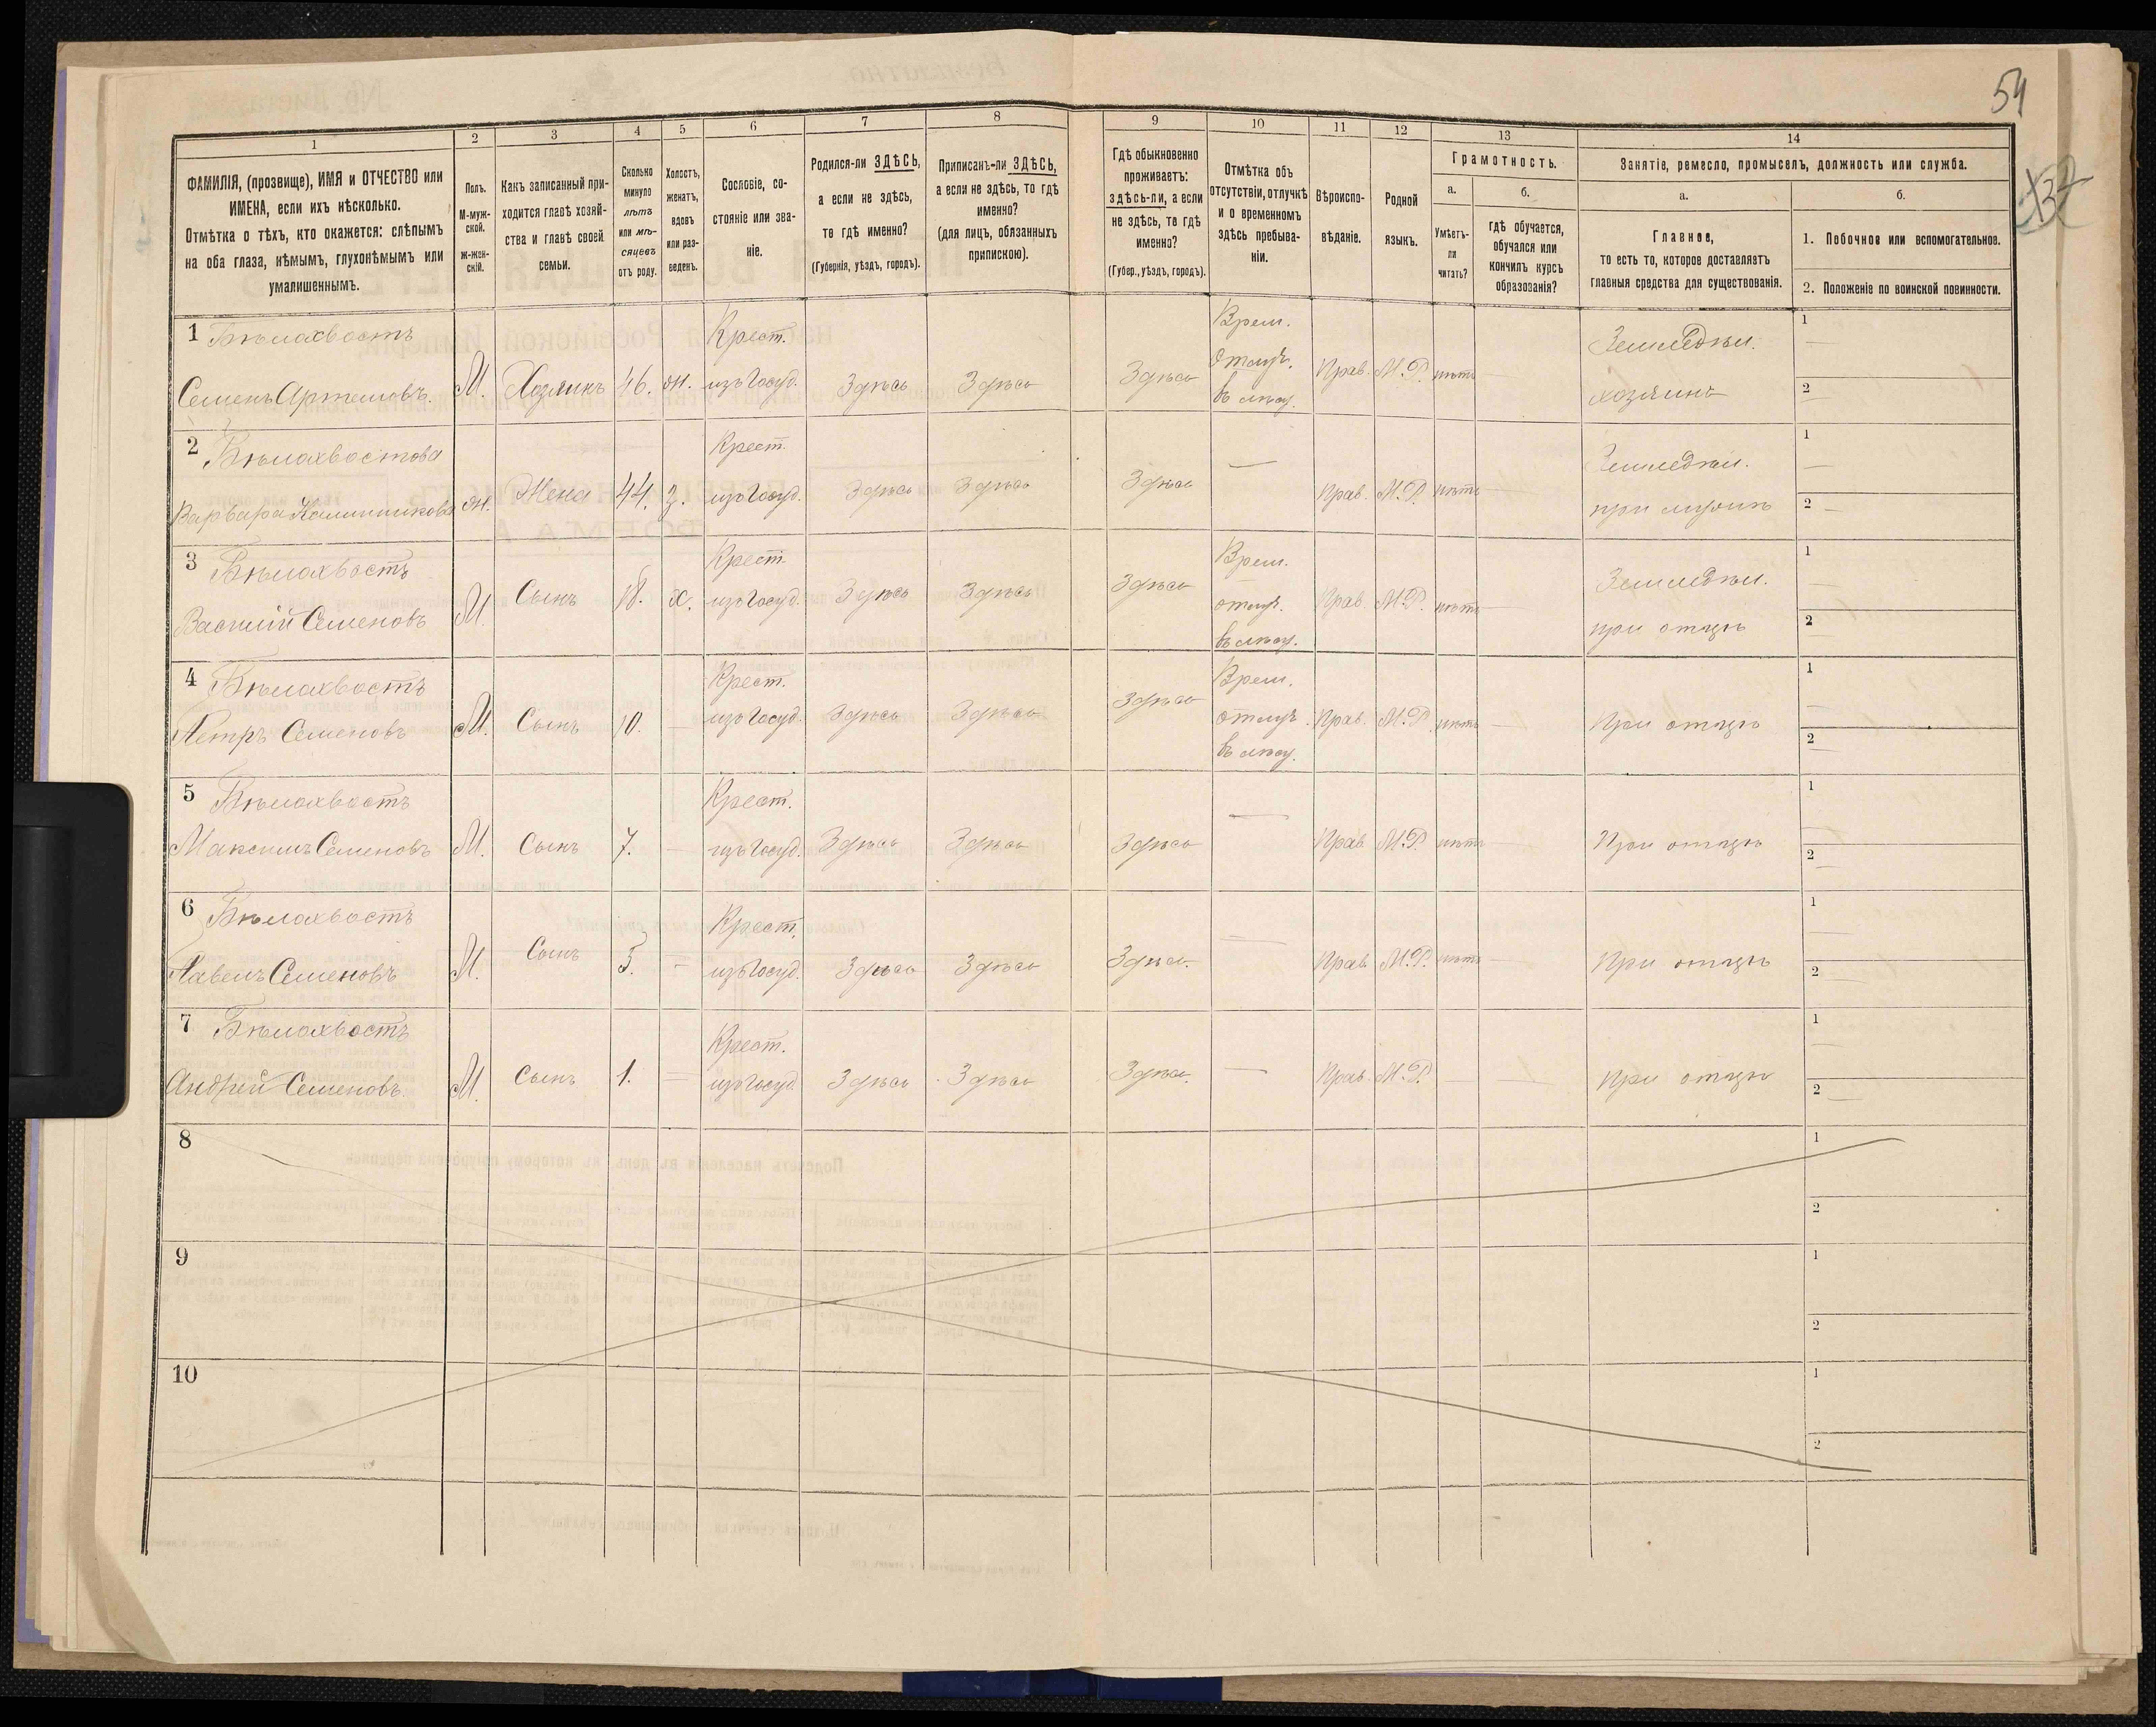 54
132
1 2 3 4 5 6 7 8 9 10 11 12 13 14
ФАМИЛІЯ, (прозвище), ИМЯ и ОТЧЕСТВО или
ИМЕНА, если ихъ нѣсколько.
Отмѣтка о тѣхъ, кто окажется: слѣпымъ
на оба глаза, нѣмымъ, глухонѣмымъ или
умалишеннымъ.
Полъ.
М-муж-
ской.
Ж-жен-
скій.
Какъ записанный при-
ходится главѣ хозяй-
ства и главѣ своей
семьи.
Сколько
минуло
лѣтъ
или мѣ-
сяцевъ
отъ роду.
Холостъ,
женатъ,
вдовъ
или раз-
веденъ.
Сословіе, со-
стояніе или зва-
ніе.
Родился-ли ЗДѢСЬ,
а если не здѣсь,
то гдѣ именно?
(Губернія, уѣздъ, городъ).
Приписанъ-ли ЗДѢСЬ,
а если не здѣсь, то гдѣ
именно?
(для лицъ, обязанныхъ
припискою).
Гдѣ обыкновенно
проживаетъ:
здѣсь-ли, а если
не здѣсь, то гдѣ
именно?
(Губер., уѣздъ, городъ).
Отмѣтка объ
отсутствіи, отлучкѣ
и о временномъ
здѣсь пребыва-
ніи.
Вѣроиспо-
вѣданіе.
Родной
языкъ.
Грамотность.
а.
Умѣетъ-
ли
читать?
б.
гдѣ обучается,
обучался или
кончилъ курсъ
образованія?
Занятіе, ремесло, промыселъ, должность или служба.
а.
Главное,
то есть то, которое доставляетъ
главныя средства для существованія.
б.
1. Побочное или вспомогательное.
2. Положеніе по воинской повинности.
1 Бѣлахвостъ Крест. Врем. Земледѣл. 1
Семенъ Артемовъ. М. Хозяинъ 46. ж. изъ Госуд. Здѣсь Здѣсь Здѣсь отлуч. Прав. М.Р. нѣтъ хозяинъ 2
въ лѣсу.
2 Бѣлахвостова Крест. Земледѣл. 1
Варвара ж. Жена 44. з. изъ Госуд. Здѣсь Здѣсь Здѣсь — Прав. М.Р. нѣтъ при мужѣ 2
3 Бѣлахвостъ Крест. Врем. Земледѣл. 1
Василій Семеновъ М. Сынъ 18. х. изъ Госуд. Здѣсь Здѣсь Здѣсь отлуч. Прав. М.Р. нѣтъ при отцѣ 2
въ лѣсу.
4 Бѣлахвостъ Крест. Врем. 1
Петръ Семеновъ М. Сынъ 10. — изъ Госуд. Здѣсь Здѣсь Здѣсь отлуч. Прав. М.Р. нѣтъ При отцѣ 2
въ лѣсу.
5 Бѣлахвостъ Крест. 1
Максимъ Семеновъ М. Сынъ 7. — изъ Госуд. Здѣсь Здѣсь Здѣсь — Прав. М.Р. нѣтъ При отцѣ 2
6 Бѣлахвостъ Крест. 1
Павелъ Семеновъ М. Сынъ 5. — изъ Госуд. Здѣсь Здѣсь Здѣсь. — Прав. М.Р. нѣтъ При отцѣ 2
7 Бѣлахвостъ Крест. 1
Андрей Семеновъ. М. Сынъ 1. — изъ Госуд. Здѣсь Здѣсь Здѣсь. — Прав. М.Р. — — При отцѣ 2
8 1
2
9 1
2
10 1
2